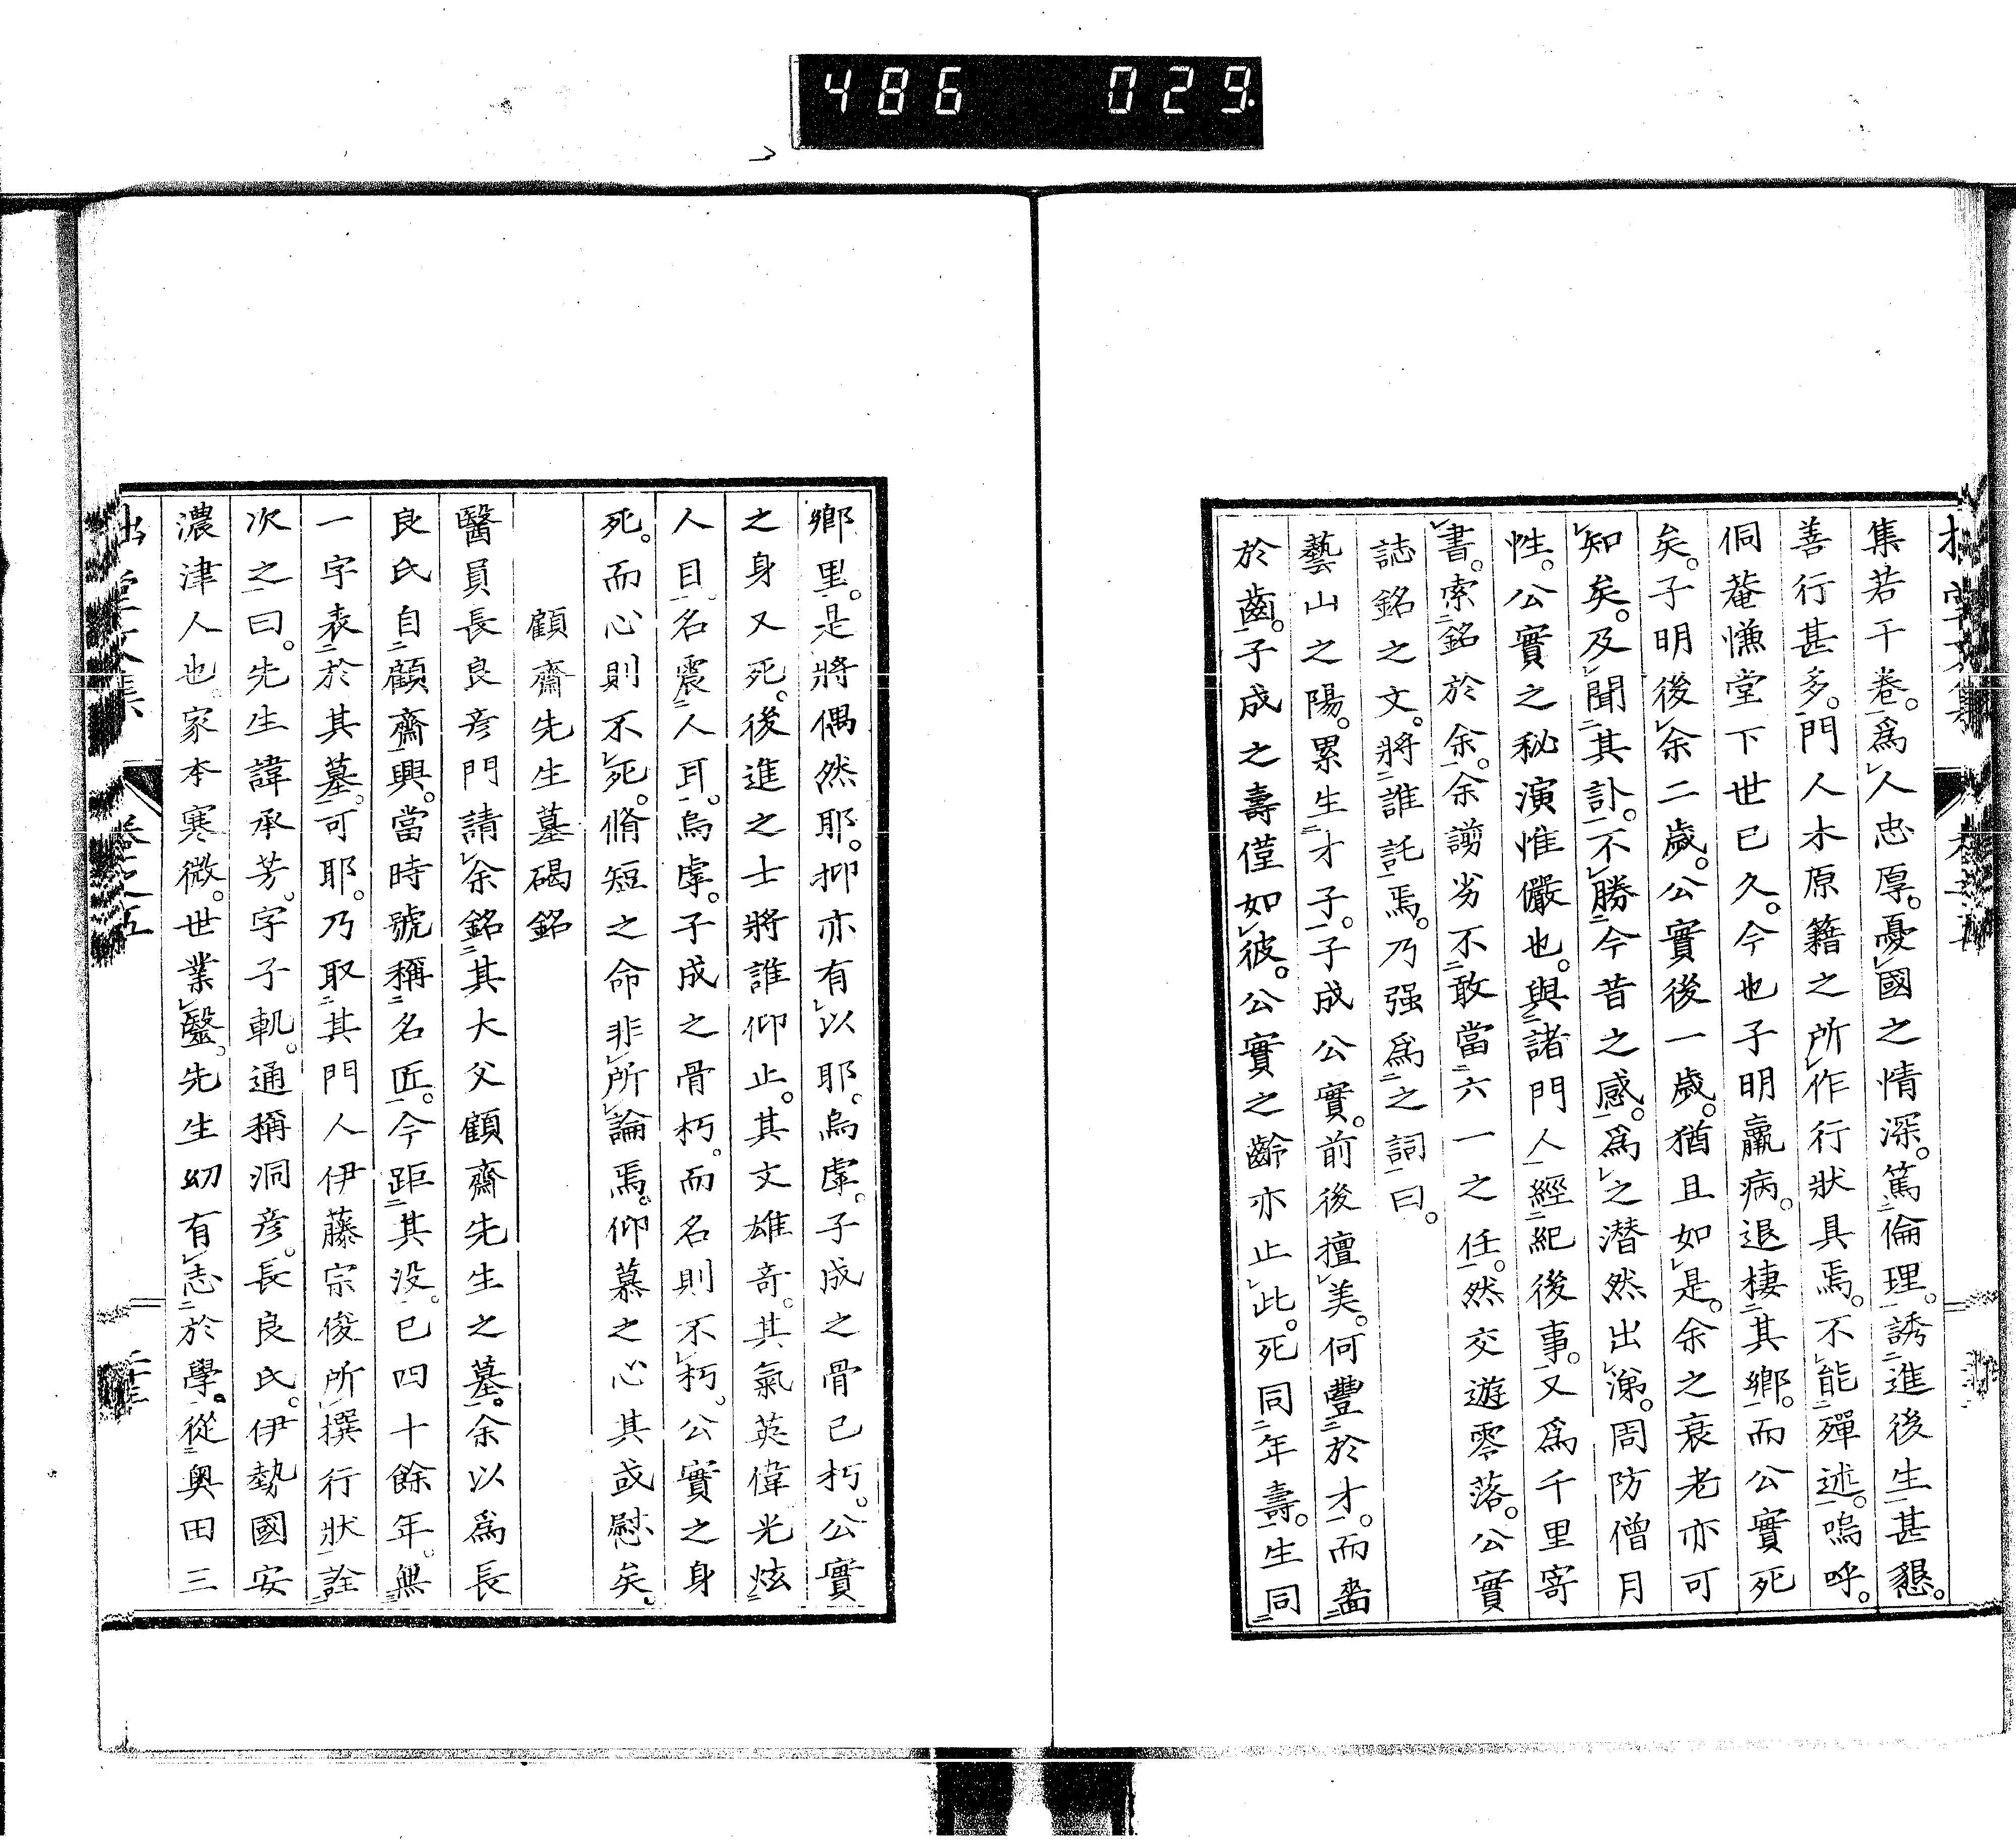 486 029
集若干卷。爲人忠厚。憂國之情深。篤倫理。誘進後生甚懇。
善行甚多。門人木原籍之所作行狀具焉。不能殫述。嗚呼。
侗菴慊堂下世已久。今也子明羸病。退棲其鄉。而公實死
矣。子明後余二歲。公實後一歲。猶且如是。余之衰老亦可
知矣。及聞其訃。不勝今昔之感。爲之潛然出涕。周防僧月
性。公實之秘演惟儼也。與諸門人經紀後事。又爲千里寄
書。索銘於余。余謭劣不敢當六一之任。然交遊零落。公實
誌銘之文。將誰託焉。乃强爲之詞曰。
藝山之陽。累生才子。子成公實。前後擅美。何豐於才。而嗇
於齒。子成之壽僅如彼。公實之齡亦止此。死同年壽。生同
鄉里。是將偶然耶。抑亦有以耶。烏虖。子成之骨已朽。公實
之身又死。後進之士將誰仰止。其文雄奇。其氣英偉光炫
人目。名震人耳。烏虖。子成之骨朽。而名則不朽。公實之身
死。而心則不死。脩短之命非所論焉。仰慕之心其或慰矣。
顧齋先生墓碣銘
醫員長良彥門請余銘其大父顧齋先生之墓。余以爲長
良氏自顧齋興。當時號稱名匠。今距其没。已四十餘年。無
一字表於其墓。可耶。乃取其門人伊藤宗俊所撰行狀詮
次之曰。先生諱承芳。字子軌。通稱洞彥。長良氏。伊勢國安
濃津人也。家本寒微。世業毉。先生幼有志於學。從奥田三
堂文集 卷之五